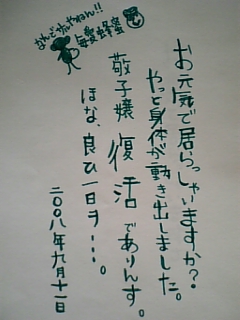 なんでやねん!!
毎愛蜂蜜
お元気で居らっしゃいますか?
やっと身体が動き出しました。
敬子嬢復活でありんす。
ほな、良ひ一日ヲ…。
二〇〇八年九月十一日